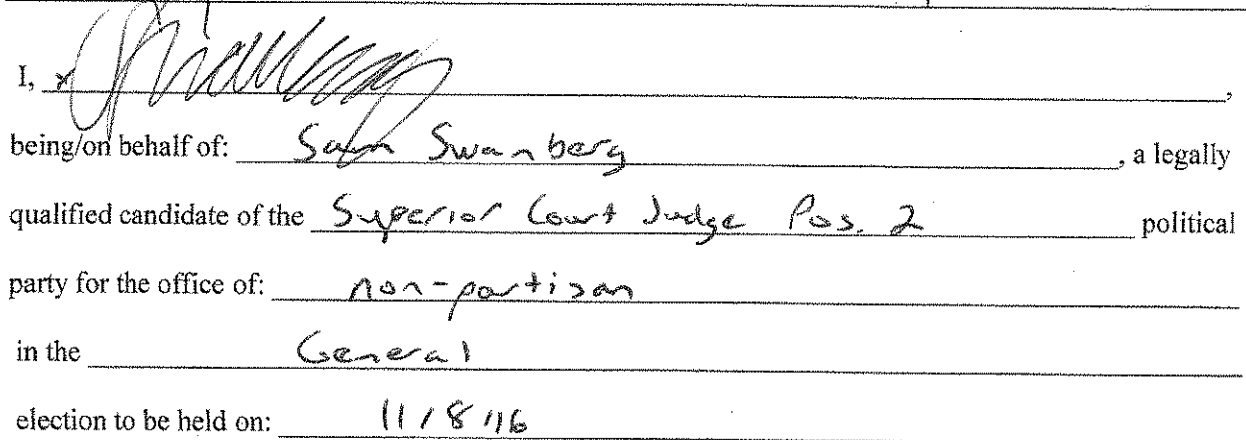 I, x ,
being/on behalf of: Sam Swanberg , a legally
qualified candidate of the Superior Court Judge Pos. 2 political
party for the office of: non-partisan
in the General
election to be held on: 11/8/16